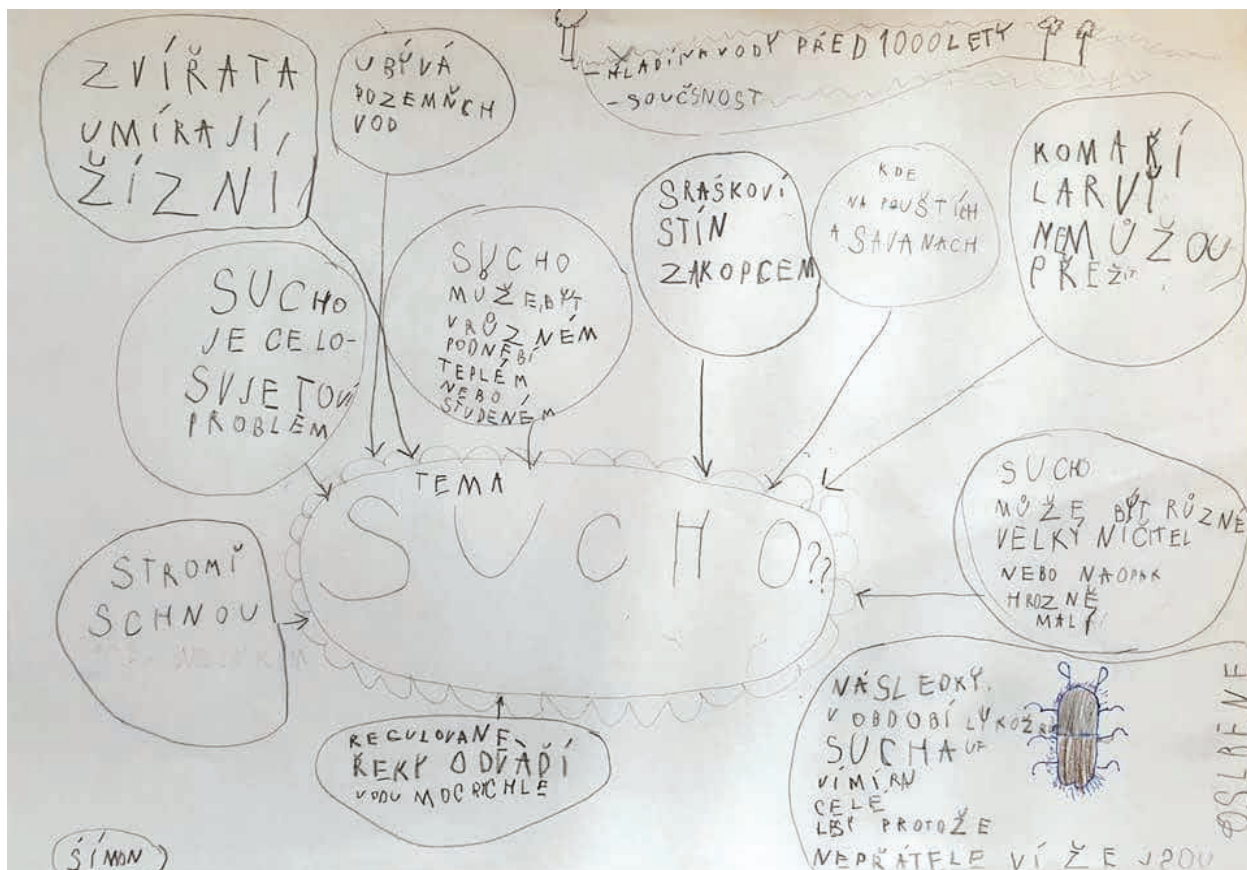 ZVÍŘATA
UMÍRAJÍ
ŽÍZNÍ
UBÝVÁ
POZEMŇCH
VOD
-HLADÍNA VODY PŘED 1000 LETY
-SOUČSNOST
SRAŠKOVÍ
STÍN
ZAKOPCEM
KDE
NA POUŠTÍCH
A SAVANACH
KOMAŘÍ
LARVÍ
NEMŮŽOU
PŘEŽIT
SUCHO
JE CELO-
SVJETOVÍ
PROBLÉM
SUCHO
MŮŽE BÝT
V RŮZNÉM
PODNEBÍ
TEPLÉM
NEBO
STUDENÉM
TEMA
SUCHO??
SUCHO
MŮŽE BÝT RŮZNĚ
VELKÝ NIČITEL
NEBO NAOPAK
HROZNĚ
MALÝ
STROMÍ
SCHNOU
REGULOVANÉ
ŘEKY ODVÁDÍ
VODU MOC RYCHLE
NÁSLEDKY
V OBDOBÍ
SUCHA
VÍMÍRAJ
CELÉ
LESY PROTOŽE
NEPŘÁTELE VÍ ŽE JSOU
OSLABENÉ
ŠÍMON